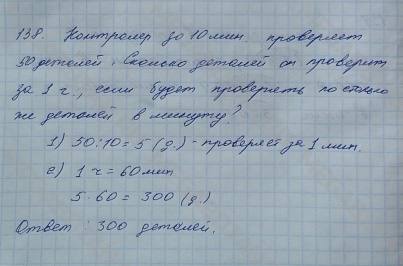 138. Контролер за 10 мин. проверяет
50 деталей. Сколько деталей он проверит
за 1 ч., если будет проверять по столько
же деталей в минуту?
1) 50:10=5 (д.) - проверяет за 1 мин.
2) 1 ч = 60 мин
5·60=300 (д.)
Ответ: 300 деталей.